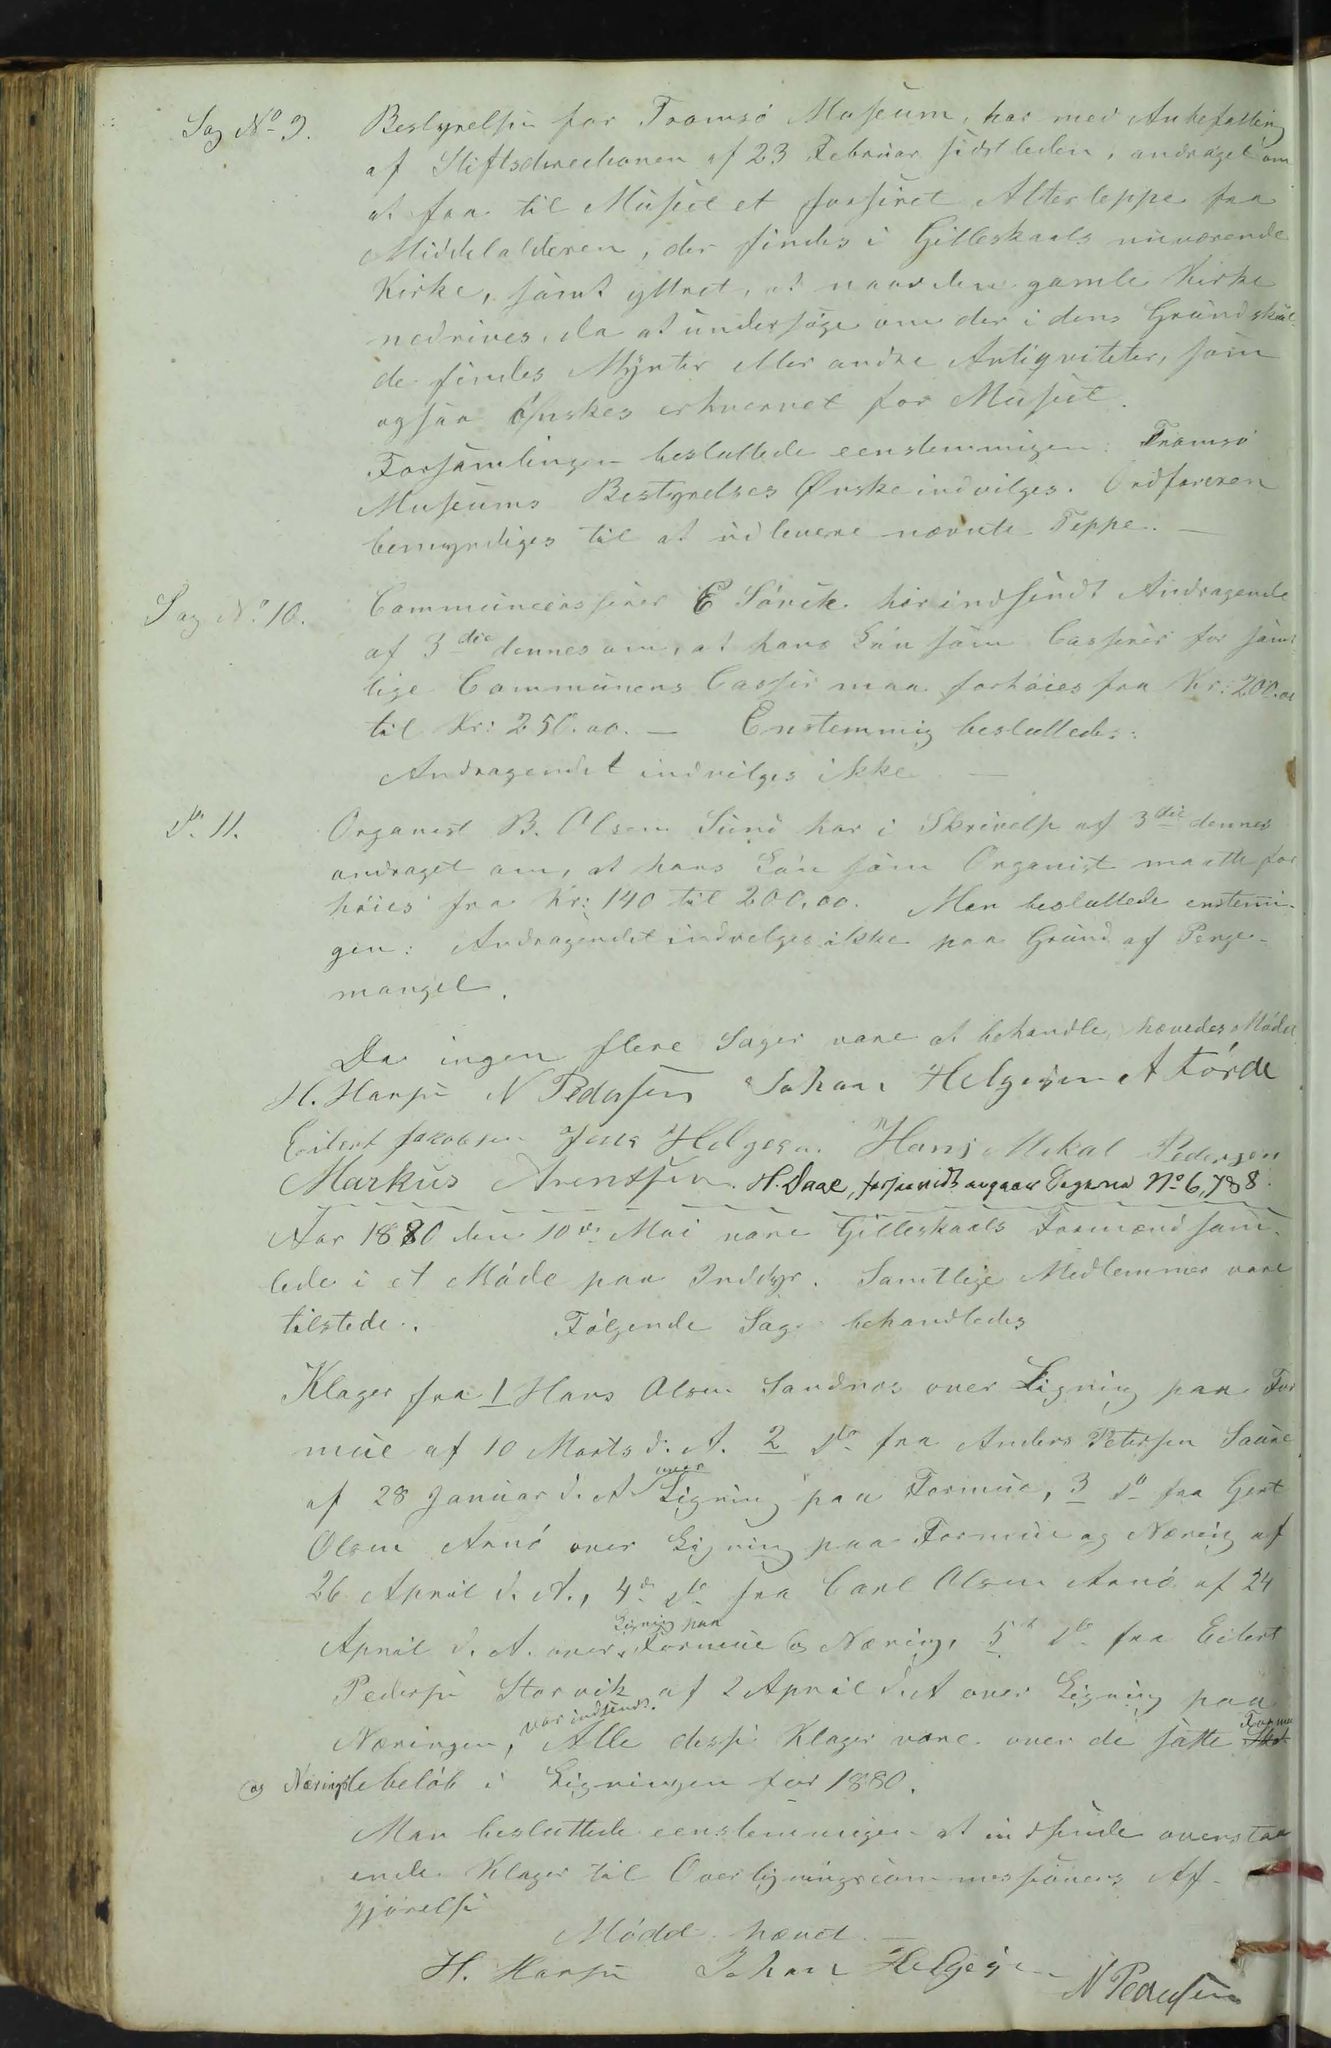 Sag No 9. Bestyrelsen for Tromsö Museum, har med Anbefalling
af Stiftsdirectionen af 23 Februar sidstleden, andraget om
at faa til Museet et forsiret Alterteppe fra
Middelalderen, der findes i Gilleskaals nuværende
Kirke, samt yttret, at naar den gamle Kirke
nedrives, da at undersøge om der i dens Grundskol-
de findes Mynter eller andre Antiqviteter, som
ogsaa Ønskes erhvervet for Museet.
Forsamlingen besluttede eenstemmigen: Tromsö
Museums Bestyrelses Ønske indvilges. Ordføreren
bemyndiges til at udlevere nævnte Teppe. —
Sag No. 10. Communecasserer E Sörvik har indsendt Andragende
af 3die dennes om, at hans Løn som Casserer for samt
lige Communens Casser maa forhöies fra Kr: 200.00
til Kr: 250.00. — Enstemmig besluttedes:
Andragendet indvilges ikke —
Do. 11. Organist B. Olsen Sund har i Skrivelse af 3die dennes
andraget om, at hans Løn som Organist maatte for
höies fra Kr: 140 til 200.00. Man besluttede enstemi-
gen: Andragendet indvilges ikke paa Grund af Penge-
mangel.
Da ingen flere Sager vare at behandle, hævedes Mödet
H. Hansen N Pedersen Johan Helgesen A Förde
Eilert Jakobsen Jens Helgesen. Hans Mikal Pedersen
Markus Arentsen. H. Daae, forsaavidt angaar Sagerne No 6, 7 & 8.
Aar 1880 den 10de Mai vare Gilleskaals Formænd sam-
lede i et Möde paa Inddyr. Samtlige Medlemmer vare
tilstede. Følgende Sager behandledes
Klager fra 1 Hans Olsen Sandnes over Ligning paa For
mue af 10 Marts d. A. 2 Do fra Anders Petersen Saura
af 28 Januar d. A over Ligning paa Formue, 3 Do fra Gert
Olsen Arnö over Ligning paa Formue og Næring af
26 April d. A., 4de Do fra Carl Olsen Arnö af 24
April d. A. over Ligning paa Formue og Næring, 5te Do fra Eilert
Pedersen Storvik af 2 April d. A over Ligning paa
Næringen, var indsendt. Alle disse Klager vare over de satte Formu
og Næringsbeløb i Ligningen for 1880.
Man besluttede eenstemmigen at indsende ovenstaa
ende Klager til Overligningscommissionens Af-
gjörelse
Mödet hævet. —
H. Hansen Johan Helgesen N Pedersen